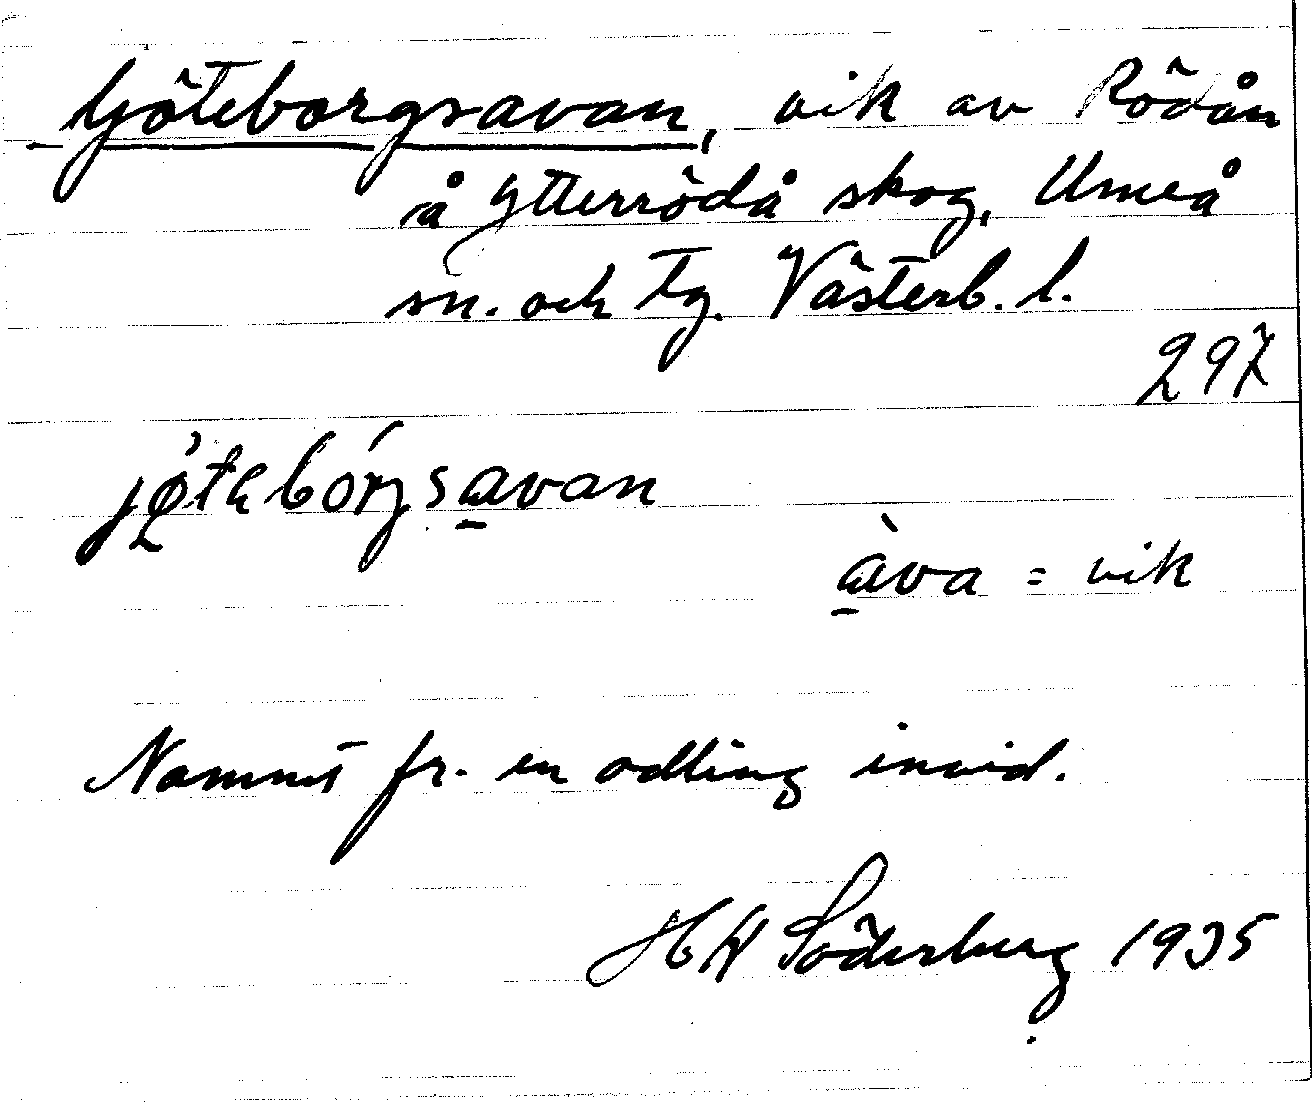 Göteborgsavan, vik av Rödån
å Ytterrödå skog, Umeå
sn. och tg. Västerb. l.
297
jø̀tebórgsa̱van
à̱va = vik
Namnet fr. en odling invid.
HW Söderberg 1935